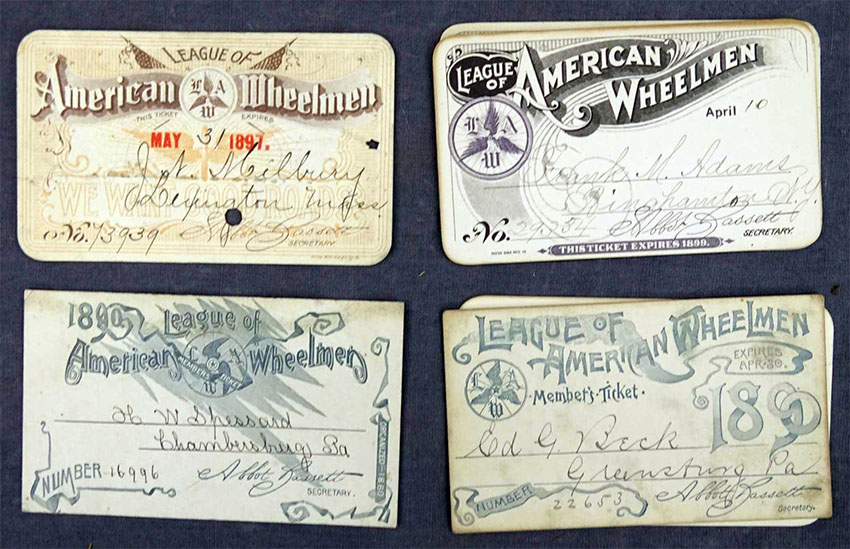 LEAGUE OF
American Wheelmen
L A W
THIS TICKET EXPIRES
MAY 31 1897.
Milbury
Lexington Mass
WE WANT GOOD ROADS
No. 73939
Abbot Bassett
SECRETARY.
LEAGUE OF AMERICAN WHEELMEN
L A W
April 10
Frank M. Adams
Binghamton N.Y.
No.
Abbot Bassett
SECRETARY.
THIS TICKET EXPIRES 1899.
1890. League of
American Wheelmen
L A W
MEMBER'S TICKET
H W Spessard
Chambersburg Pa
ORGANIZED 1880
NUMBER 16996
Abbot Bassett
SECRETARY.
LEAGUE OF
AMERICAN WHEELMEN
L A W
EXPIRES
APR. 30.
Member's Ticket.
1890
Ed G Beck
Greensburg Pa
NUMBER
22653
Abbot Bassett
Secretary.